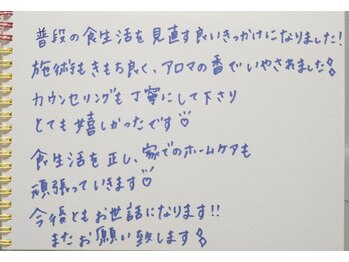 普段の食生活を見直す良いきっかけになりました!
施術もきもち良く、アロマの香でいやされました
カウンセリングも丁寧にして下さり
とても嬉しかったです♡
食生活を正し、家でのホームケアも
頑張っていきます♡
今後ともお世話になります!!
またお願い致します